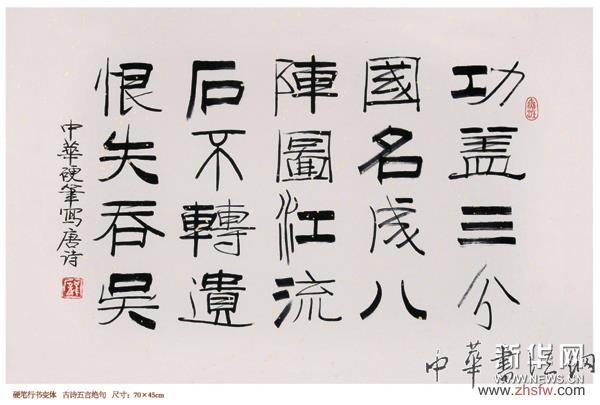 功盖三分
國名成八
陣圖江流
石不轉遺
恨失吞吴
中華硬筆寫唐诗
新华网
中華書法網
www.zhsfw.com
硬笔行书变体 古诗五言绝句 尺寸：70×45cm